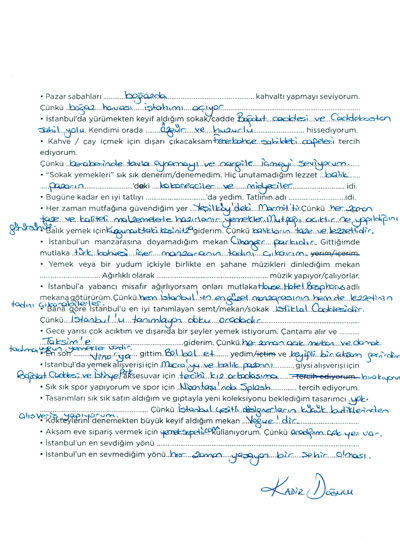 • Pazar sabahları ........ boğazda ........ kahvaltı yapmayı seviyorum.
Çünkü boğaz havası iştahımı açıyor
• İstanbul'da yürümekten keyif aldığım sokak/cadde Bağdat caddesi ve Caddebostan
sahil yolu. Kendimi orada ..... özgür ve huzurlu ..... hissediyorum.
• Kahve / çay içmek için dışarı çıkacaksam fenerbahçe sahildeki cafeleri tercih
ediyorum.
Çünkü beraberinde tavla oynamayı ve nargile içmeyi seviyorum.
• "Sokak yemekleri" sık sık denerim/denemedim. Hiç unutamadığım lezzet .. balık
pazarın ........'deki kokoreçciler ve midyeciler ........ idi.
• Bugüne kadar en iyi tatlıyı ........'da yedim. Tatlının adı ........idi.
• Her zaman mutfağına güvendiğim yer Yeşilköy'deki Çünkü her zaman
taze ve kaliteli malzemelerle hazırlanır yemekler. Mutfağı açıktır ne yapıldığını
görürsünüz
• Balık yemek için giderim. Çünkü balıkların taze ve lezzetlidir.
• İstanbul'un manzarasına doyamadığım mekan Cihangir parkıdır. Gittiğimde
mutlaka türk kahvesi içer manzaranın tadını çıkarırım. yerim/içerim.
• Yemek veya bir yudum içkiyle birlikte en şahane müzikleri dinlediğim mekan
........ Ağırlıklı olarak ........ müzik yapıyor/çalıyorlar.
• İstanbul'a yabancı misafir ağırlıyorsam onları mutlaka House Hotel Bosphorus adlı
mekana götürürüm. Çünkü hem İstanbul'un en güzel manzarasının hem de lezzetinin
tadını çıkarabilirler.
• Bana göre İstanbul'u en iyi tanımlayan semt/mekan/sokak İstiklal Caddesidir.
Çünkü İstanbul'u tanımlayan doku oradadır
• Gece yarısı çok acıktım ve dışarıda bir şeyler yemek istiyorum. Çantamı alır ve ....
Taksim'e ........ giderim. Çünkü her zaman açık mekan ve damak
tadıma uygun yemekler vardır.
• En son ..... 'ya ..... gittim. Bol bol et .... yedim/içtim ve keyifli bir akşam geçirdim
• İstanbul'da yemek alışverişi için Macro'yu ve balık pazarını ........ giysi alışverişi için
Bağdat Caddesi ve aksesuvar için tercih kız arkadaşıma tercih ediyorum. bırakıyorum
• Sık sık spor yapıyorum ve spor için Nişantaşı'nda Splash ........ tercih ederim.
• Tasarımları sık sık satın aldığım ve gıptayla yeni koleksiyonu beklediğim tasarımcı yok.
........ Çünkü İstanbul çeşitli designerların küçük butiklerinden
alışveriş yapıyorum.
• Kokteylerini denemekten büyük keyif aldığım mekan .. Vogue'dir.
• Akşam eve sipariş vermek için yemeksepeti.com kullanıyorum. Çünkü aradığım çok yer var.
• İstanbul'un en sevdiğim yönü ........
• İstanbul'un en sevmediğim yönü her zaman yaşayan bir şehir olması.
Kadir Doğulu